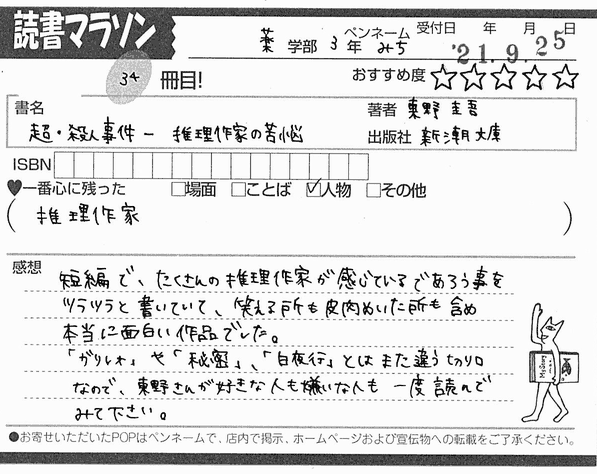 読書マラソン
薬 学部 3 年 ペンネーム みち
受付日 年 月 日
'21.9.25
34 冊目!
おすすめ度 ☆☆☆☆☆
書名
超・殺人事件ー 推理作家の苦悩
著者 東野圭吾
出版社 新潮文庫
ISBN
♥一番心に残った □場面 □ことば ☑人物 □その他
( 推理作家 )
感想
短編で、たくさんの推理作家が感じているであろう事を
ツラツラと書いていて、笑える所も皮肉めいた所も含め
本当に面白い作品でした。
「ガリレオ」や「秘密」、「白夜行」とはまた違う切り口
なので、東野さんが好きな人も嫌いな人も 一度読んで
みて下さい。
MyStory
●お寄せいただいたPOPはペンネームで、店内で掲示、ホームページおよび宣伝物への転載をご了承ください。